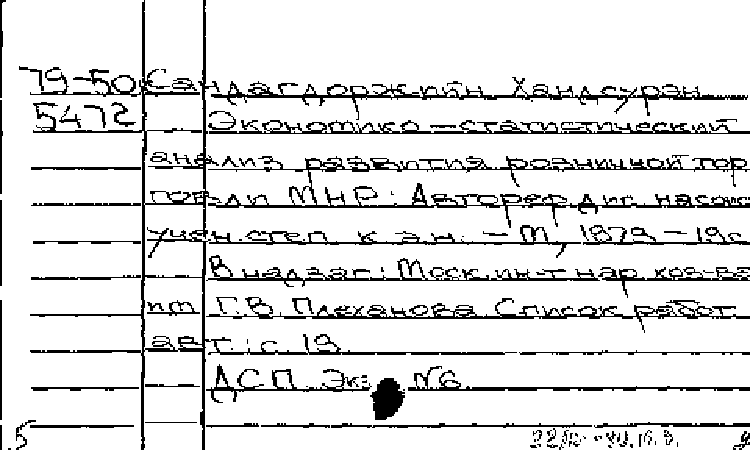 79-50 Сандагдоржийн Хандсурэн
5472 Экономико-статистический
анализ развития розничной тор
говли МНР: Автореф дис. на соис
учен. степ. к.э.н. - М, 1979 - 19с
В надзаг: Моск. ин-т нар. хоз-ва
им Г.В. Плеханова Список работ
авт.: с. 19
ДСП Экз N6
5